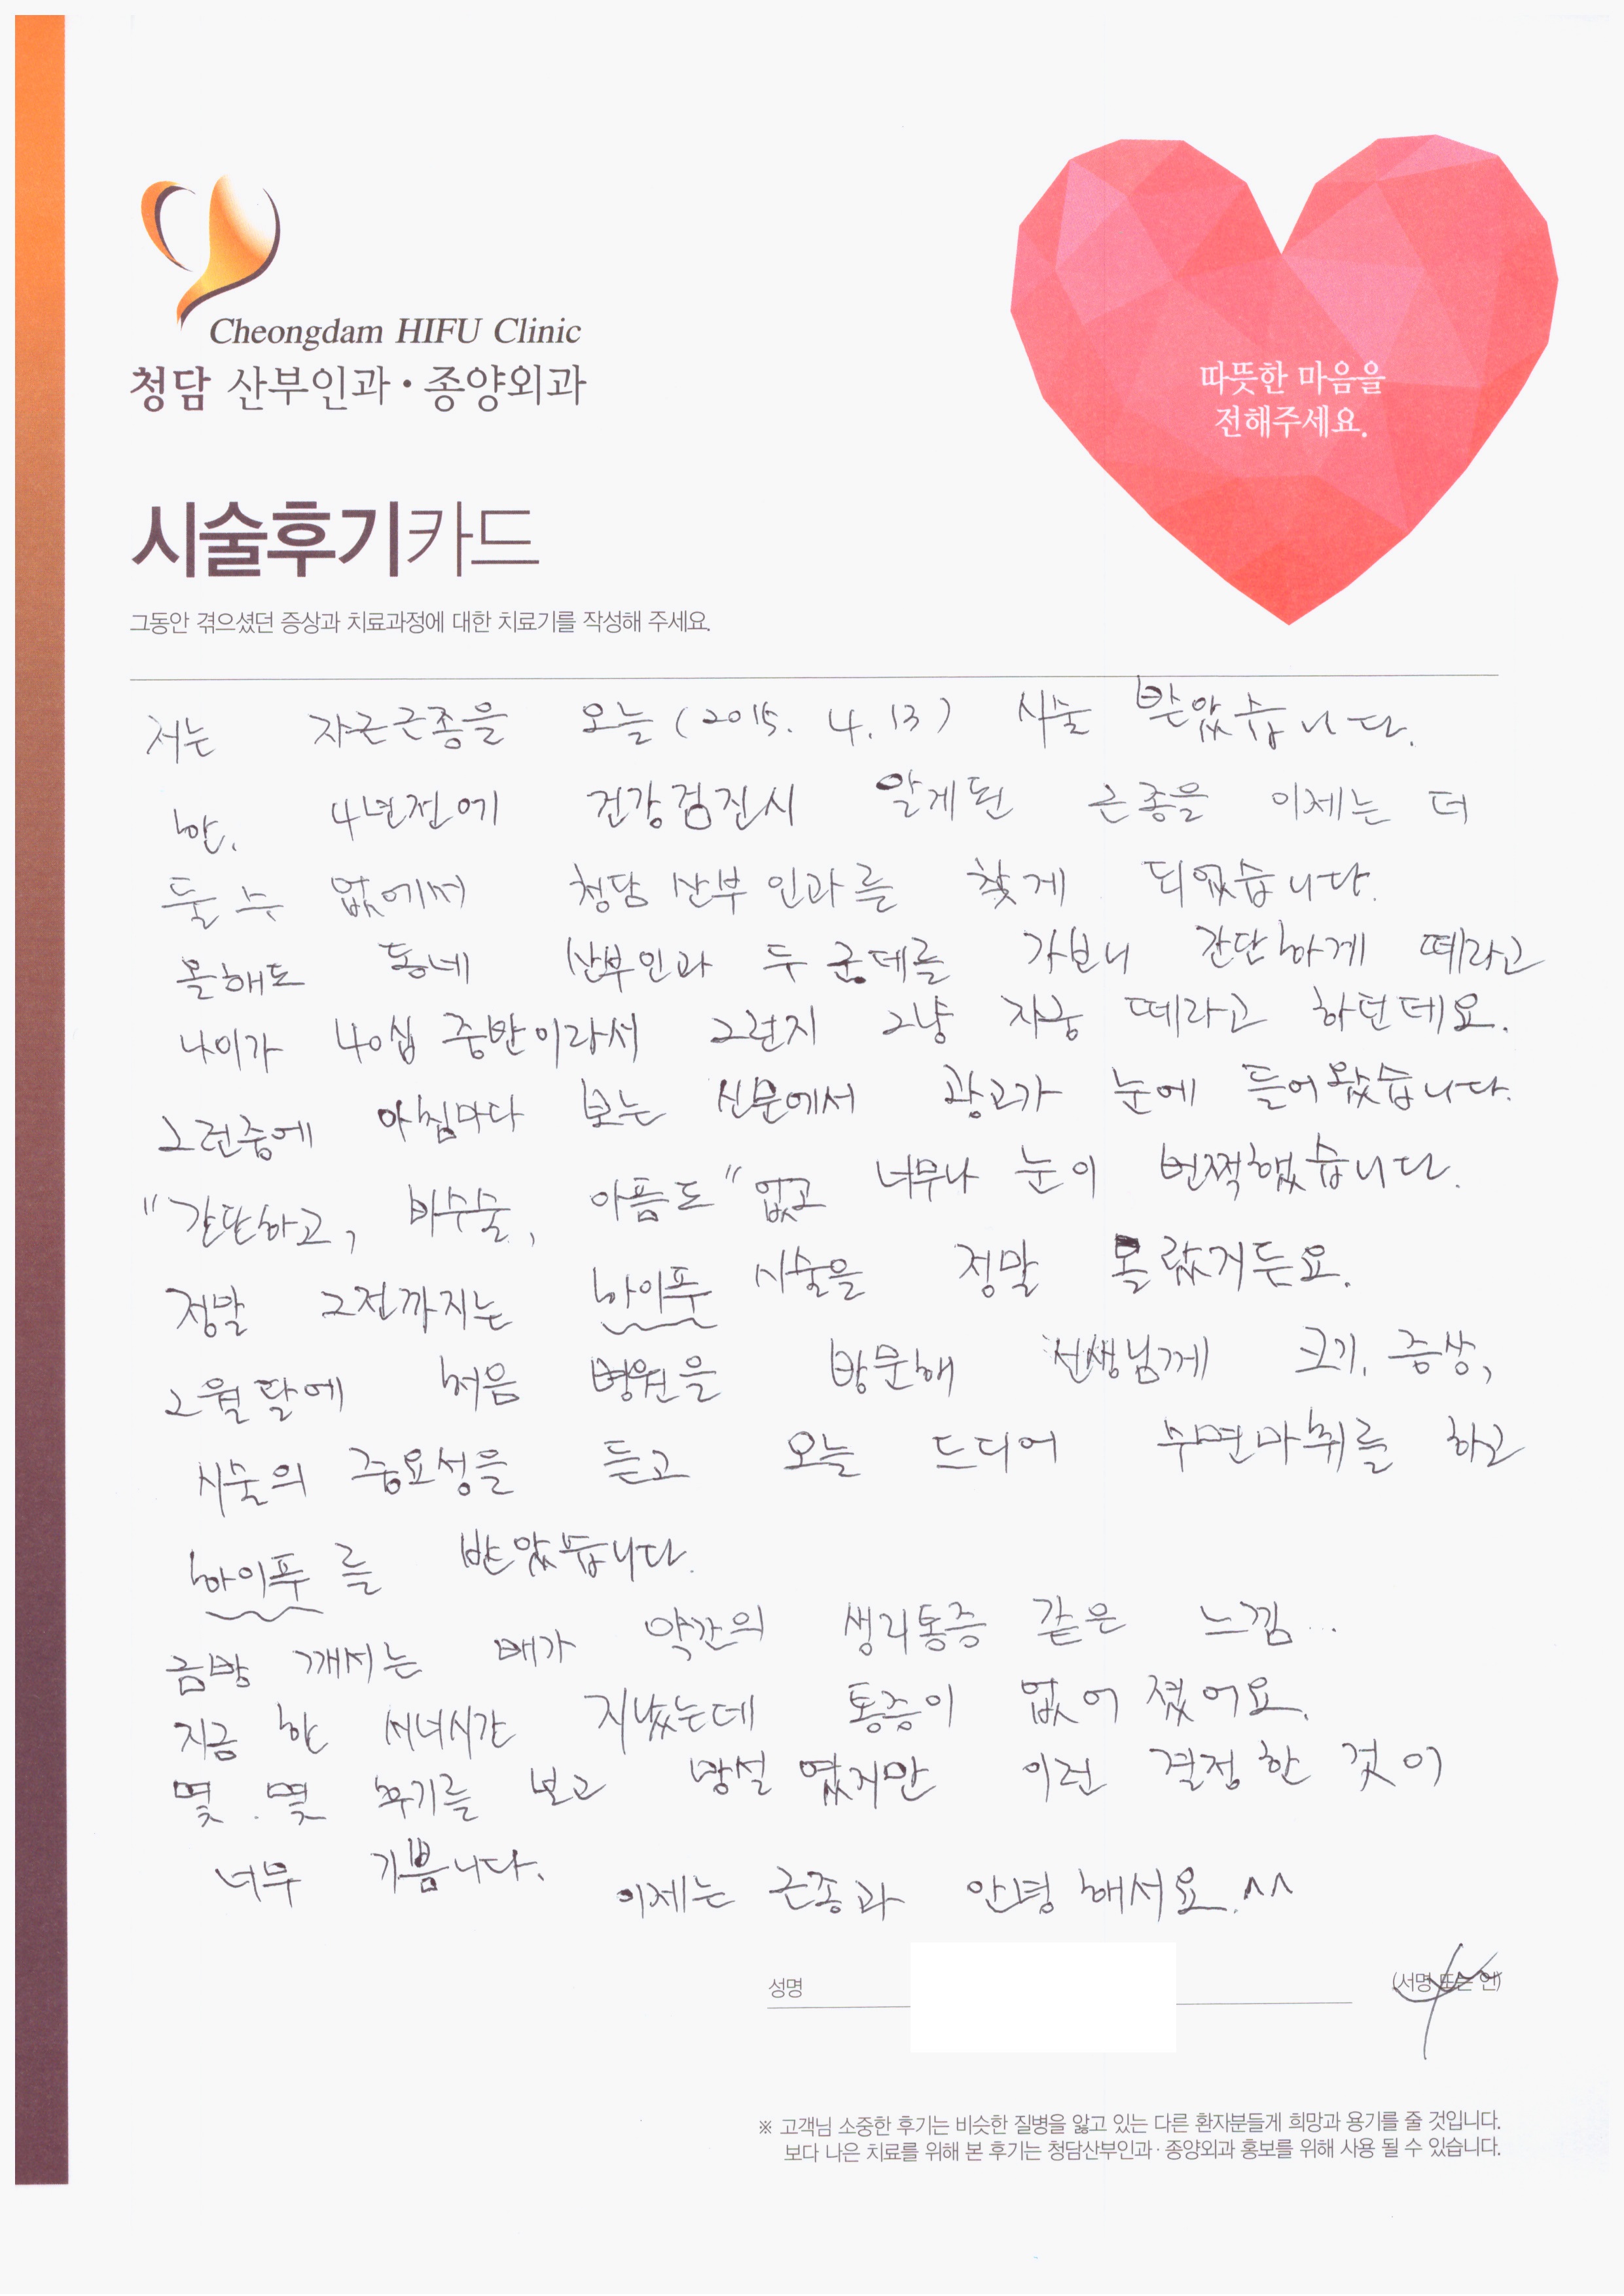 Cheongdam HIFU Clinic
청담 산부인과 · 종양외과
따뜻한 마음을
전해주세요.
시술후기카드
그동안 겪으셨던 증상과 치료과정에 대한 치료기를 작성해 주세요.
저는 자근근종을 오늘(2015. 4. 13) 시술 받았습니다.
한. 4년전에 건강검진시 알게된 근종을 이제는 더
둘 수 없에서 청담 산부인과를 찾게 되었습니다.
올해도 동네 산부인과 두 군데를 가보니 간단하게 떼라고
나이가 40십 중반이라서 그런지 그냥 자궁 떼라고 하던데요.
그런중에 아침마다 보는 신문에서 광고가 눈에 들어왔습니다.
"간단하고, 비수술, 아픔도" 없고 너무나 눈이 번쩍했습니다.
정말 그전까지는 하이푸 시술을 정말 몰랐거든요.
2월달에 처음 병원을 방문해 선생님께 크기, 증상,
시술의 중요성을 듣고 오늘 드디어 수면마취를 하고
하이푸를 받았습니다.
금방 깨서는 배가 약간의 생리통증 같은 느낌...
지금 한 서너시간 지났는데 통증이 없어졌어요.
몇.몇 후기를 보고 망설였지만 이런 결정한 것이
너무 기쁩니다. 이제는 근종과 안녕해서요.^^
성명
(서명 또는 인)
※ 고객님 소중한 후기는 비슷한 질병을 앓고 있는 다른 환자분들게 희망과 용기를 줄 것입니다.
보다 나은 치료를 위해 본 후기는 청담산부인과 · 종양외과 홍보를 위해 사용 될 수 있습니다.